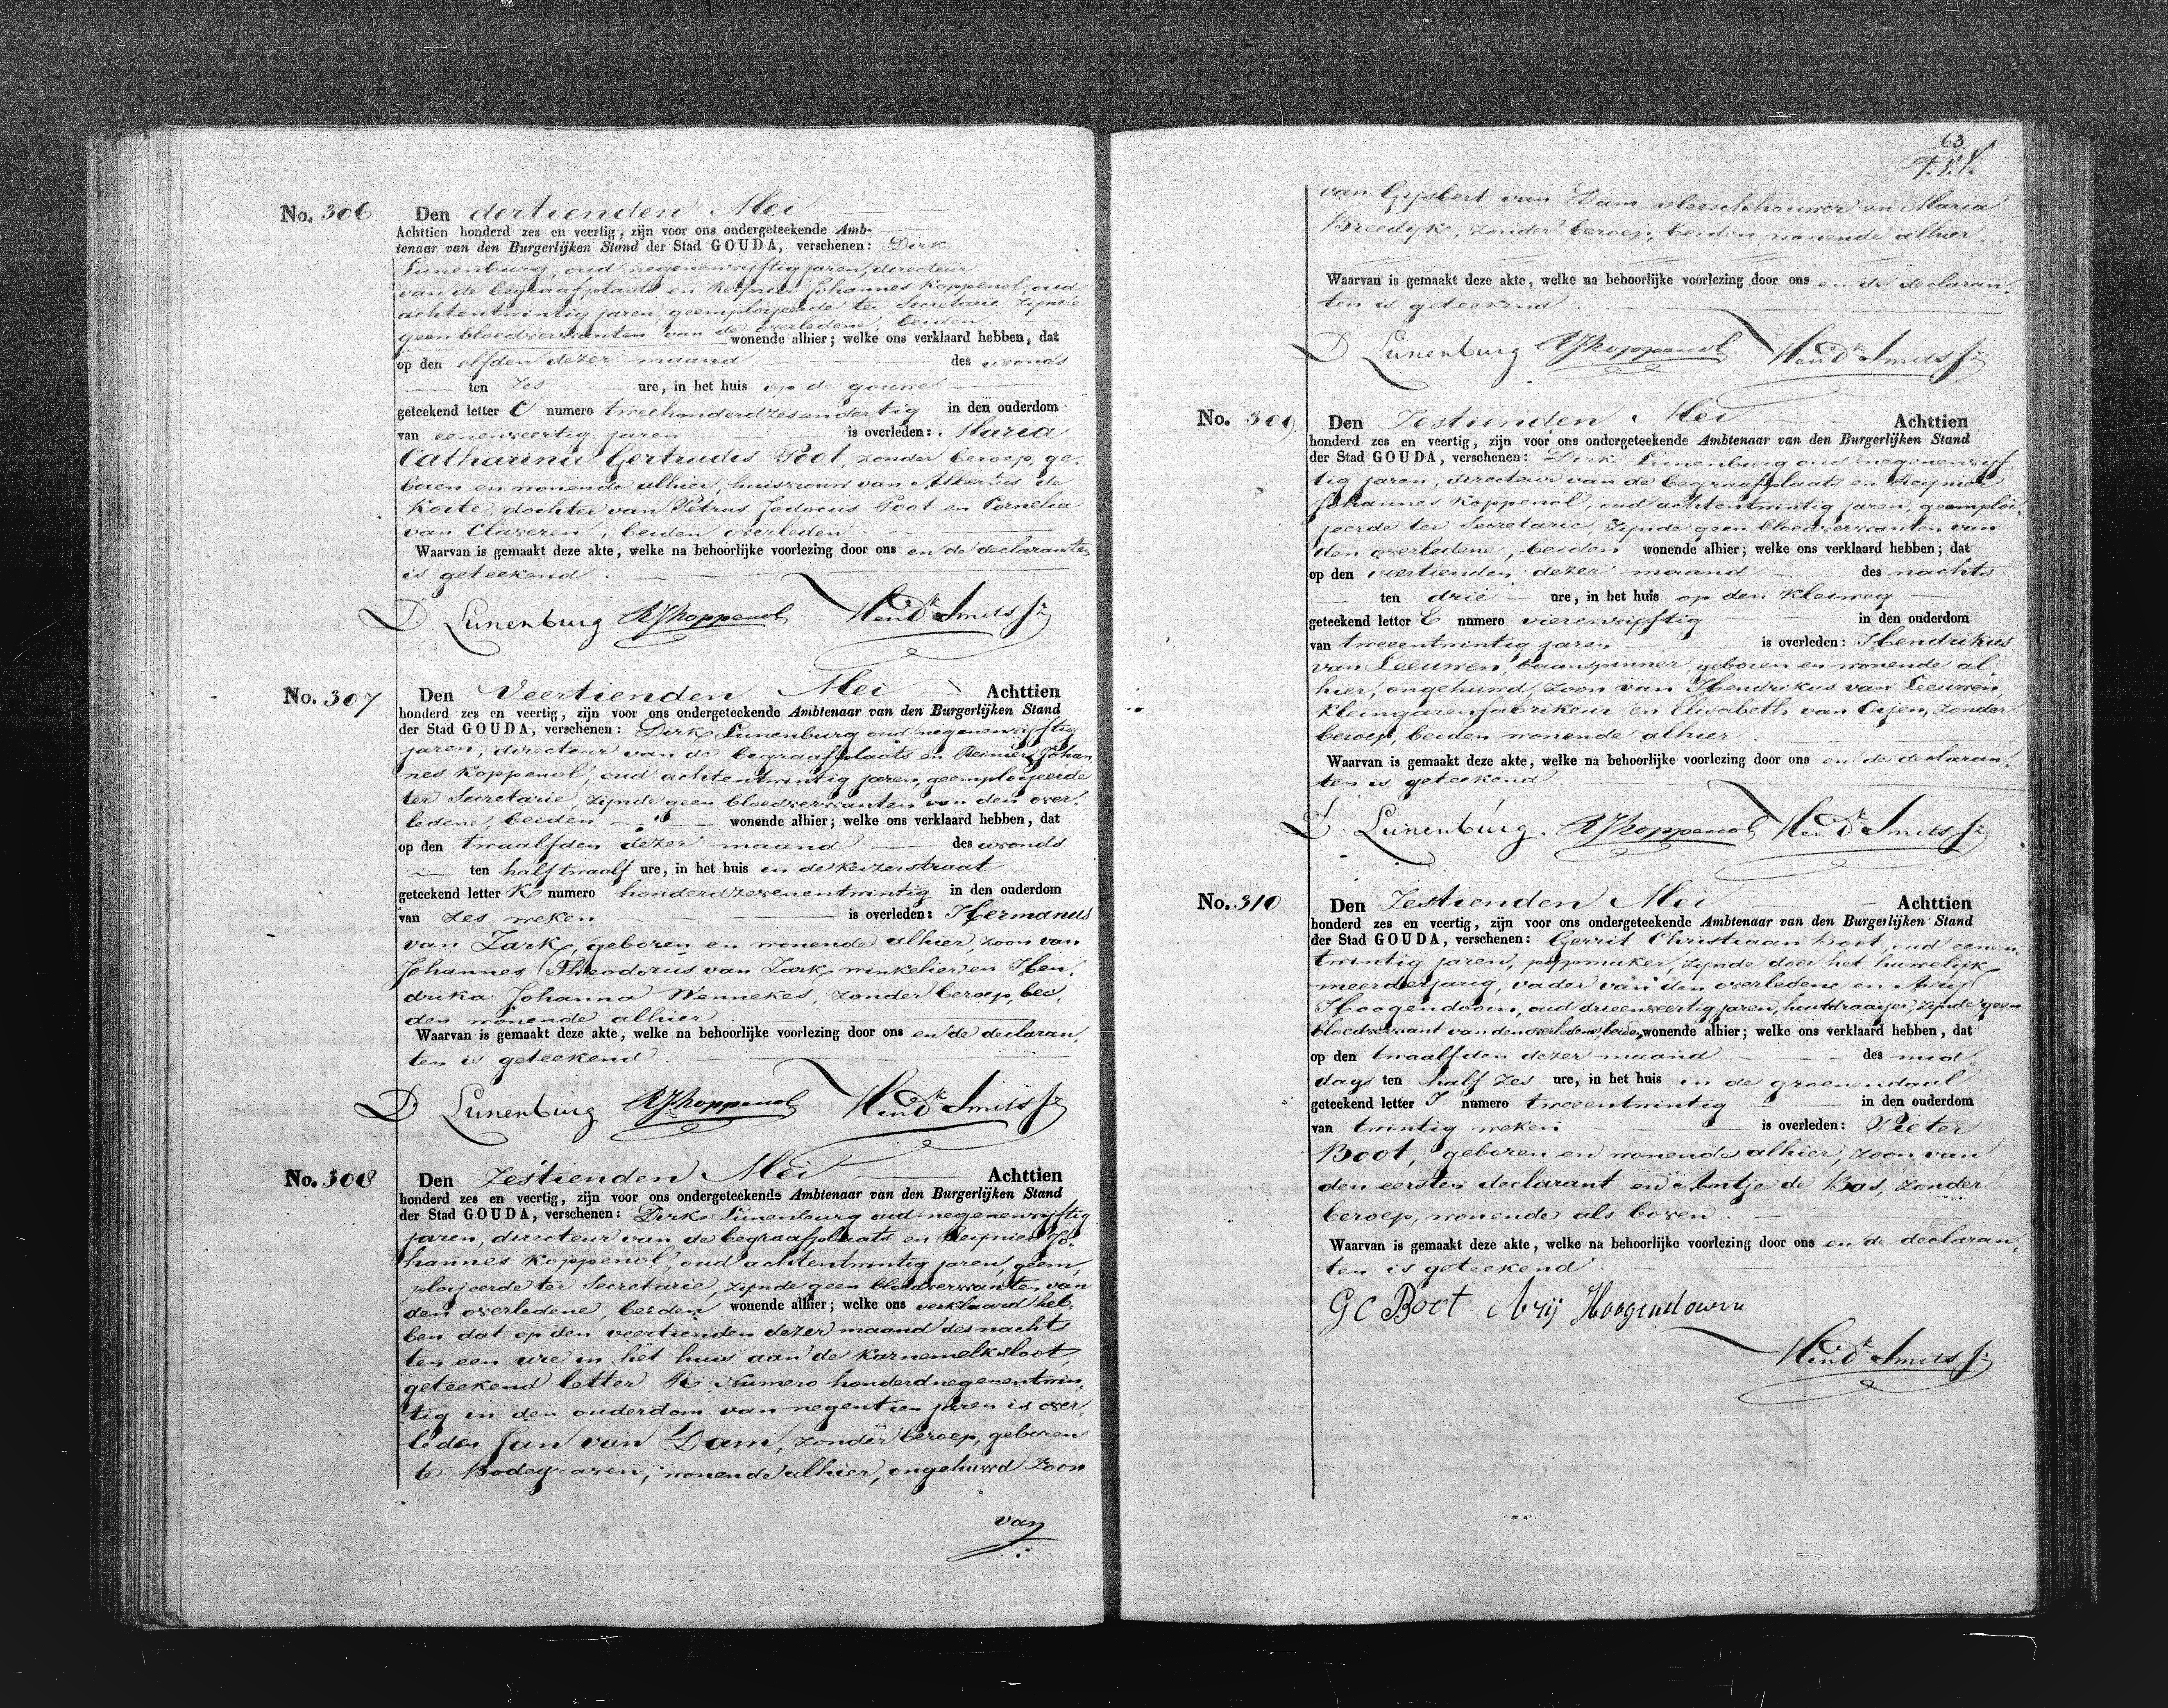 No. 306. Den dertienden Mei
Achttien honderd zes en veertig, zijn voor ons ondergeteekende Amb-
tenaar van den Burgerlijken Stand der Stad GOUDA, verschenen: Dirk
Lunenburg, oud negenenvijftig jaren, directeur
van de begraafplaats en Reijnier Johannes Koppenol, oud
achtentwintig jaren, geemploijeerde ter Secretarie, zijnde
geen bloedverwanten van de overledene, beiden
wonende alhier; welke ons verklaard hebben, dat
op den elfden dezer maand des avonds
ten zes ure, in het huis op de gouwe
geteekend letter C numero tweehonderdzesendertig in den ouderdom
van eenenveertig jaren is overleden: Maria
Catharina Gertrudis Poot, zonder beroep, ge-
boren en wonende alhier, huisvrouw van Albertus de
Korte, dochter van Petrus Jodocus Poot en Cornelia
van Claveren, beiden overleden
Waarvan is gemaakt deze akte, welke na behoorlijke voorlezing door ons en de declaranten
is geteekend.
D. Lunenburg RJKoppenol Hendk Smits Jz
No. 307 Den Veertienden Mei Achttien
honderd zes en veertig, zijn voor ons ondergeteekende Ambtenaar van den Burgerlijken Stand
der Stad GOUDA, verschenen: Dirk Lunenburg oud negenenvijftig
jaren, directeur van de begraafplaats en Reinier Johan
nes Koppenol, oud achtentwintig jaren, geemploijeerde
ter Secretarie, zijnde geen bloedverwanten van den over-
ledene, beiden wonende alhier; welke ons verklaard hebben, dat
op den twaalfden dezer maand des avonds
ten half twaalf ure, in het huis in de Keizerstraat
geteekend letter K numero honderdzevenentwintig in den ouderdom
van zes weken is overleden: Hermanus
van Zark, geboren en wonende alhier, zoon van
Johannes Theodorus van Zark, winkelier en Hen-
drika Johanna Wennekes, zonder beroep, bei-
den wonende alhier
Waarvan is gemaakt deze akte, welke na behoorlijke voorlezing door ons en de declaran-
ten is geteekend.
D. Lunenburg RJKoppenol Hendk Smits Jz
No. 308 Den Zestienden Mei Achttien
honderd zes en veertig, zijn voor ons ondergeteekende Ambtenaar van den Burgerlijken Stand
der Stad GOUDA, verschenen: Dirk Lunenburg oud negenenvijftig
jaren, directeur van de begraafplaats en Reijnier Jo-
hannes Koppenol, oud achtentwintig jaren, geem-
ploijeerde ter Secretarie, zijnde geen bloedverwanten van
den overledene, beiden wonende alhier; welke ons verklaard heb-
ben dat op den veertienden dezer maand des nachts
ten een ure in het huis aan de Karnemelksloot,
geteekend letter R numero honderdnegenentwin-
tig in den ouderdom van negentien jaren is over-
leden Jan van Dam, zonder beroep, geboren
te Bodegraven, wonende alhier, ongehuwd zoon
van
63.
van Gijsbert van Dam vleeschhouwer en Maria
Breedijk, zonder beroep, beiden wonende alhier.
Waarvan is gemaakt deze akte, welke na behoorlijke voorlezing door ons en de declaran-
ten is geteekend.
D Lunenburg RJKoppenol Hendk Smits Jz
No. 309. Den Zestienden Mei Achttien
honderd zes en veertig, zijn voor ons ondergeteekende Ambtenaar van den Burgerlijken Stand
der Stad GOUDA, verschenen: Dirk Lunenburg oud negenenvijf-
tig jaren, directeur van de begraafplaats en Reijnier
Johannes Koppenol, oud achtentwintig jaren, geemploi-
jeerde ter Secretarie, zijnde geen bloedverwanten van
den overledene, beiden wonende alhier; welke ons verklaard hebben; dat
op den veertienden dezer maand des nachts
ten drie ure, in het huis op den Kleiweg
geteekend letter E numero vierenvijftig in den ouderdom
van tweeentwintig jaren is overleden: Hendrikus
van Leeuwen, baanspinner, geboren en wonende al-
hier, ongehuwd, zoon van Hendrikus van Leeuwen,
kleingarenfabrikeur en Elisabeth van Eijen, zonder
beroep, beiden wonende alhier
Waarvan is gemaakt deze akte, welke na behoorlijke voorlezing door ons en de declaran-
ten is geteekend
D. Lunenburg. RJKoppenol Hendk Smits Jz
No. 310 Den Zestienden Mei Achttien
honderd zes en veertig, zijn voor ons ondergeteekende Ambtenaar van den Burgerlijken Stand
der Stad GOUDA, verschenen: Gerrit Christiaan Boot, oud eenen-
twintig jaren, pijpmaker, zijnde door het huwelijk
meerderjarig, vader van den overledene en Arij
Hoogendoorn, oud drieenveertig jaren, houtdraaijer, zijnde geen
bloedverwant van den overledene, beiden wonende alhier; welke ons verklaard hebben, dat
op den twaalfden dezer maand des mid-
dags ten half zes ure, in het huis in de groenendaal
geteekend letter I numero tweeentwintig in den ouderdom
van twintig weken is overleden: Pieter
Boot, geboren en wonende alhier, zoon van
den eersten declarant en Antje de Bas, zonder
beroep, wonende als boven.
Waarvan is gemaakt deze akte, welke na behoorlijke voorlezing door ons en de declaran-
ten is geteekend.
G C Boot Arij Hoogendoorn
Hendk Smits Jz